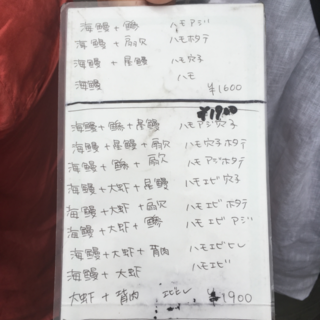 海鳗 + 鰺 ハモアジ
海鳗 + 扇次 ハモホタテ
海鳗 + 星鳗 ハモ穴子
海鳗 ハモ
¥1600
海鳗 + 鰺 + 星鳗 ハモアジ穴子
海鳗 + 星鳗 + 扇次 ハモ穴子ホタテ
海鳗 + 鰺 + 扇次 ハモアジホタテ
海鳗 + 大虾 + 星鳗 ハモエビ穴子
海鳗 + 大虾 + 扇次 ハモエビホタテ
海鳗 + 大虾 + 鰺 ハモエビアジ
海鳗 + 大虾 + 背肉 ハモエビヒレ
海鳗 + 大虾 ハモエビ
大虾 + 背肉 エビヒレ ¥1900